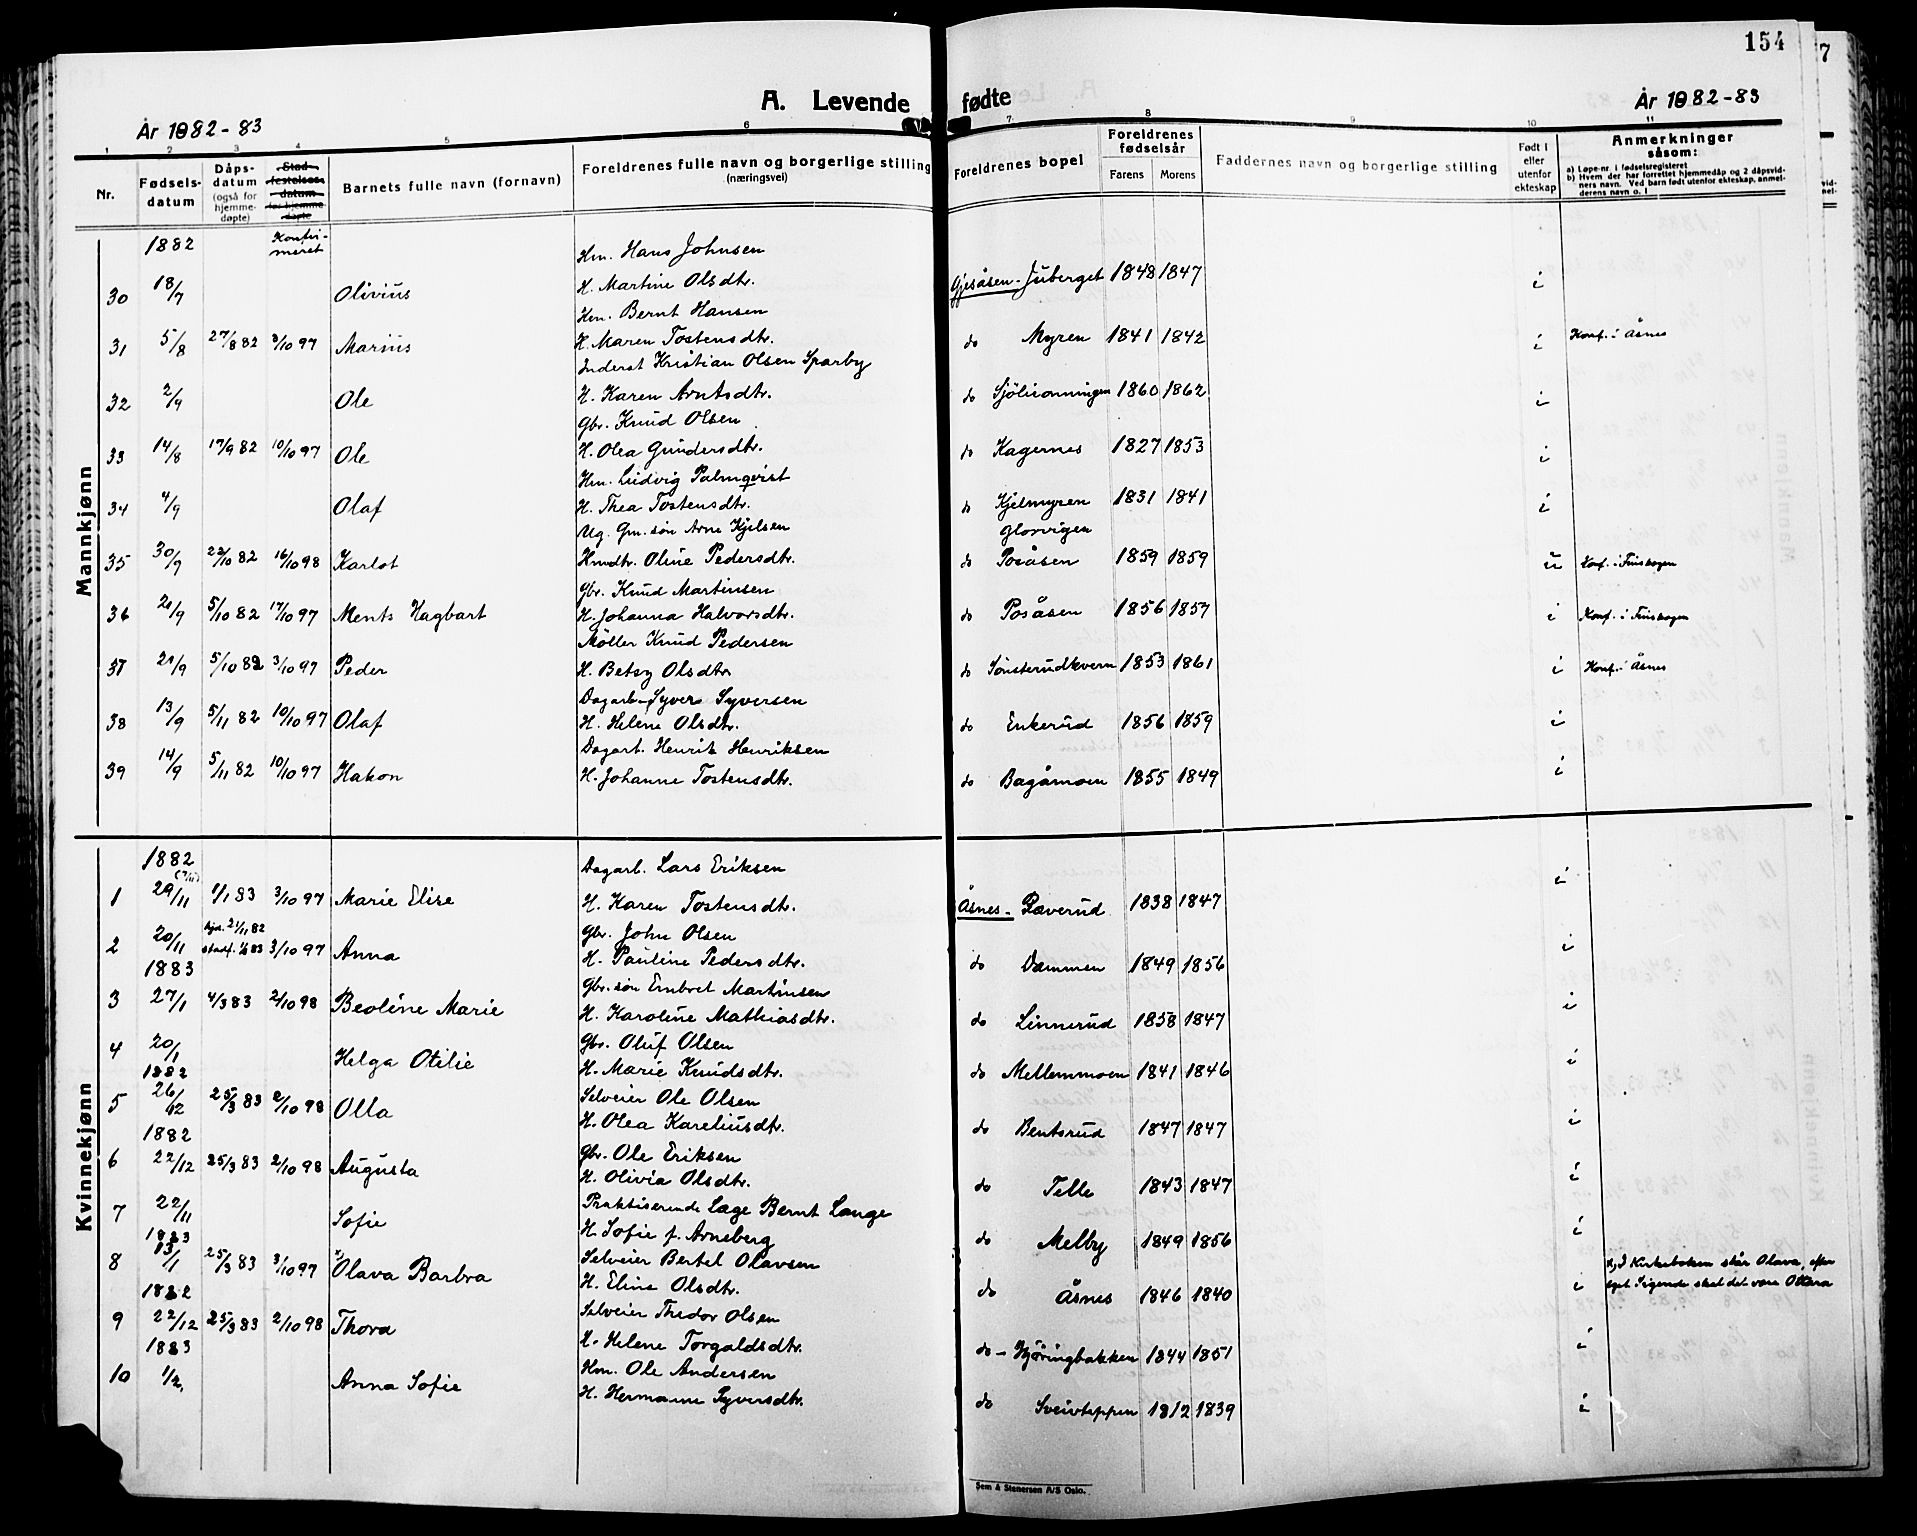 154
A. Levende fødte
År 1882-83
År 1882-83
1 2 3 4 5 6 7 8 9 10 11
Nr.
Fødsels-
datum
Dåps-
datum
(også for
hjemme-
døpte)
Stad-
festelses-
datum
for hjemme
døpte
Barnets fulle navn (fornavn)
Foreldrenes fulle navn og borgerlige stilling
(næringsvei)
Foreldrenes bopel
Foreldrenes
fødselsår
Farens Morens
Faddernes navn og borgerlige stilling
Født i
eller
utenfor
ekteskap
Anmerkninger
såsom:
a) Løpe-nr. i fødselsregisteret
b) Hvem der har forrettet hjemmedåp og 2 dåpsvid-
ners navn. Ved barn født utenfor ekteskap, anmel-
derens navn o. l
Mannkjønn
1882 Konfir-
meret
Hm. Hans Johnsen
30 18/7 Olivius H. Martine Olsdtr. Gjesåsen - Juberget 1848 1847 i
Hm. Bernt Hansen
31 5/8 27/8 82 3/10 97 Marius H. Maren Tostensdtr. do Myren 1841 1842 i Konf. i Åsnes
Inderst Kristian Olsen Sparby
32 2/9 Ole H. Karen Arntsdtr. do 1860 1862 i
Gbr. Knud Olsen
33 14/8 17/9 82 10/10 97 Ole H. Olea Gundersdtr. do Kagernes 1827 1853 i
Hm. Ludvig Palmqvist
34 4/9 Olaf H. Thea Tostensdtr. do Kjelmyren 1831 1841 i
Ug. Gm. søn Arne Kjelsen Glorvigen
35 30/9 22/10 82 16/10 98 Karlot Hmdtr. Oline Pedersdtr. do Posåsen 1859 1859 u Konf. i Finskogen
Gbr. Knud Martinsen
36 20/9 5/10 82 17/10 97 Ments Hagbart H. Johanna Halvorsdtr. do Posåsen 1856 1857 i Konf. i Finskogen
Møller Knud Pedersen
37 21/9 5/10 82 3/10 97 Peder H. Betsy Olsdtr do Sønsterudkvern 1853 1861 i Konf. i Åsnes
Dagarb. Syver Syversen
38 13/9 5/11 82 10/10 97 Olaf H. Helene Olsdtr. do Enkerud 1856 1859 i
Dagarb. Henrik Henriksen
39 14/9 5/11 82 10/10 97 Hakon H. Johanne Tostensdtr. do Bagåmoen 1855 1849 i
Kvinnekjønn
1882
Dagarb. Lars Eriksen
1 29/11 1/1 83 3/10 97 Marie Elise H. Karen Tostensdtr. Åsnes -Ræverud 1838 1847 i
hjd. 21/11 82 Gbr. John Olsen
2 20/11 stadf. 1/1 83 3/10 97 Anna H. Pauline Pedersdtr. do Dammen 1849 1856 i
1883 Gbr. søn Embret Martinsen
3 27/1 4/3 83 2/10 98 Beoline Marie H. Karoline Mathiasdtr. do Linnerud 1858 1847 i
Gbr. Oluf Olsen
4 20/1 Helga Otilie H. Marie Knudsdtr. do Mellemmoen 1841 1846 i
1882 Selveier Ole Olsen
5 26/12 25/3 83 2/10 98 Olla H. Olea Kareliusdtr. do Bentsrud 1847 1847 i
1882 Gbr. Ole Eriksen
6 22/12 25/3 83 2/10 98 Augusta H. Olivia Olsdtr. do Telle 1843 1847 i
Praktiserende Læge Bernt Lange
7 22/11 Sofie H. Sofie f. Arneberg do Melby 1849 1856 i
1883 Selveier Bertel Olavsen x) I Kirkeboken står Olava, efter
8 13/1 25/3 83 3/10 97 x) Olava Barbra H. Eline Olsdtr. do Åsnes 1846 1840 i eget Sigende skal det være Oliana
1882 Selveier Thedor Olsen
9 22/12 25/3 83 2/10 98 Thora H. Helene Torgaldsdtr. do - Hjöringbakken 1844 1851 i
1883 Hm. Ole Andersen
10 1/2 Anna Sofie H. Hermanne Syversdtr. do Sveivteppen 1812 1839 i
Sem & Stenersen A/S Oslo.